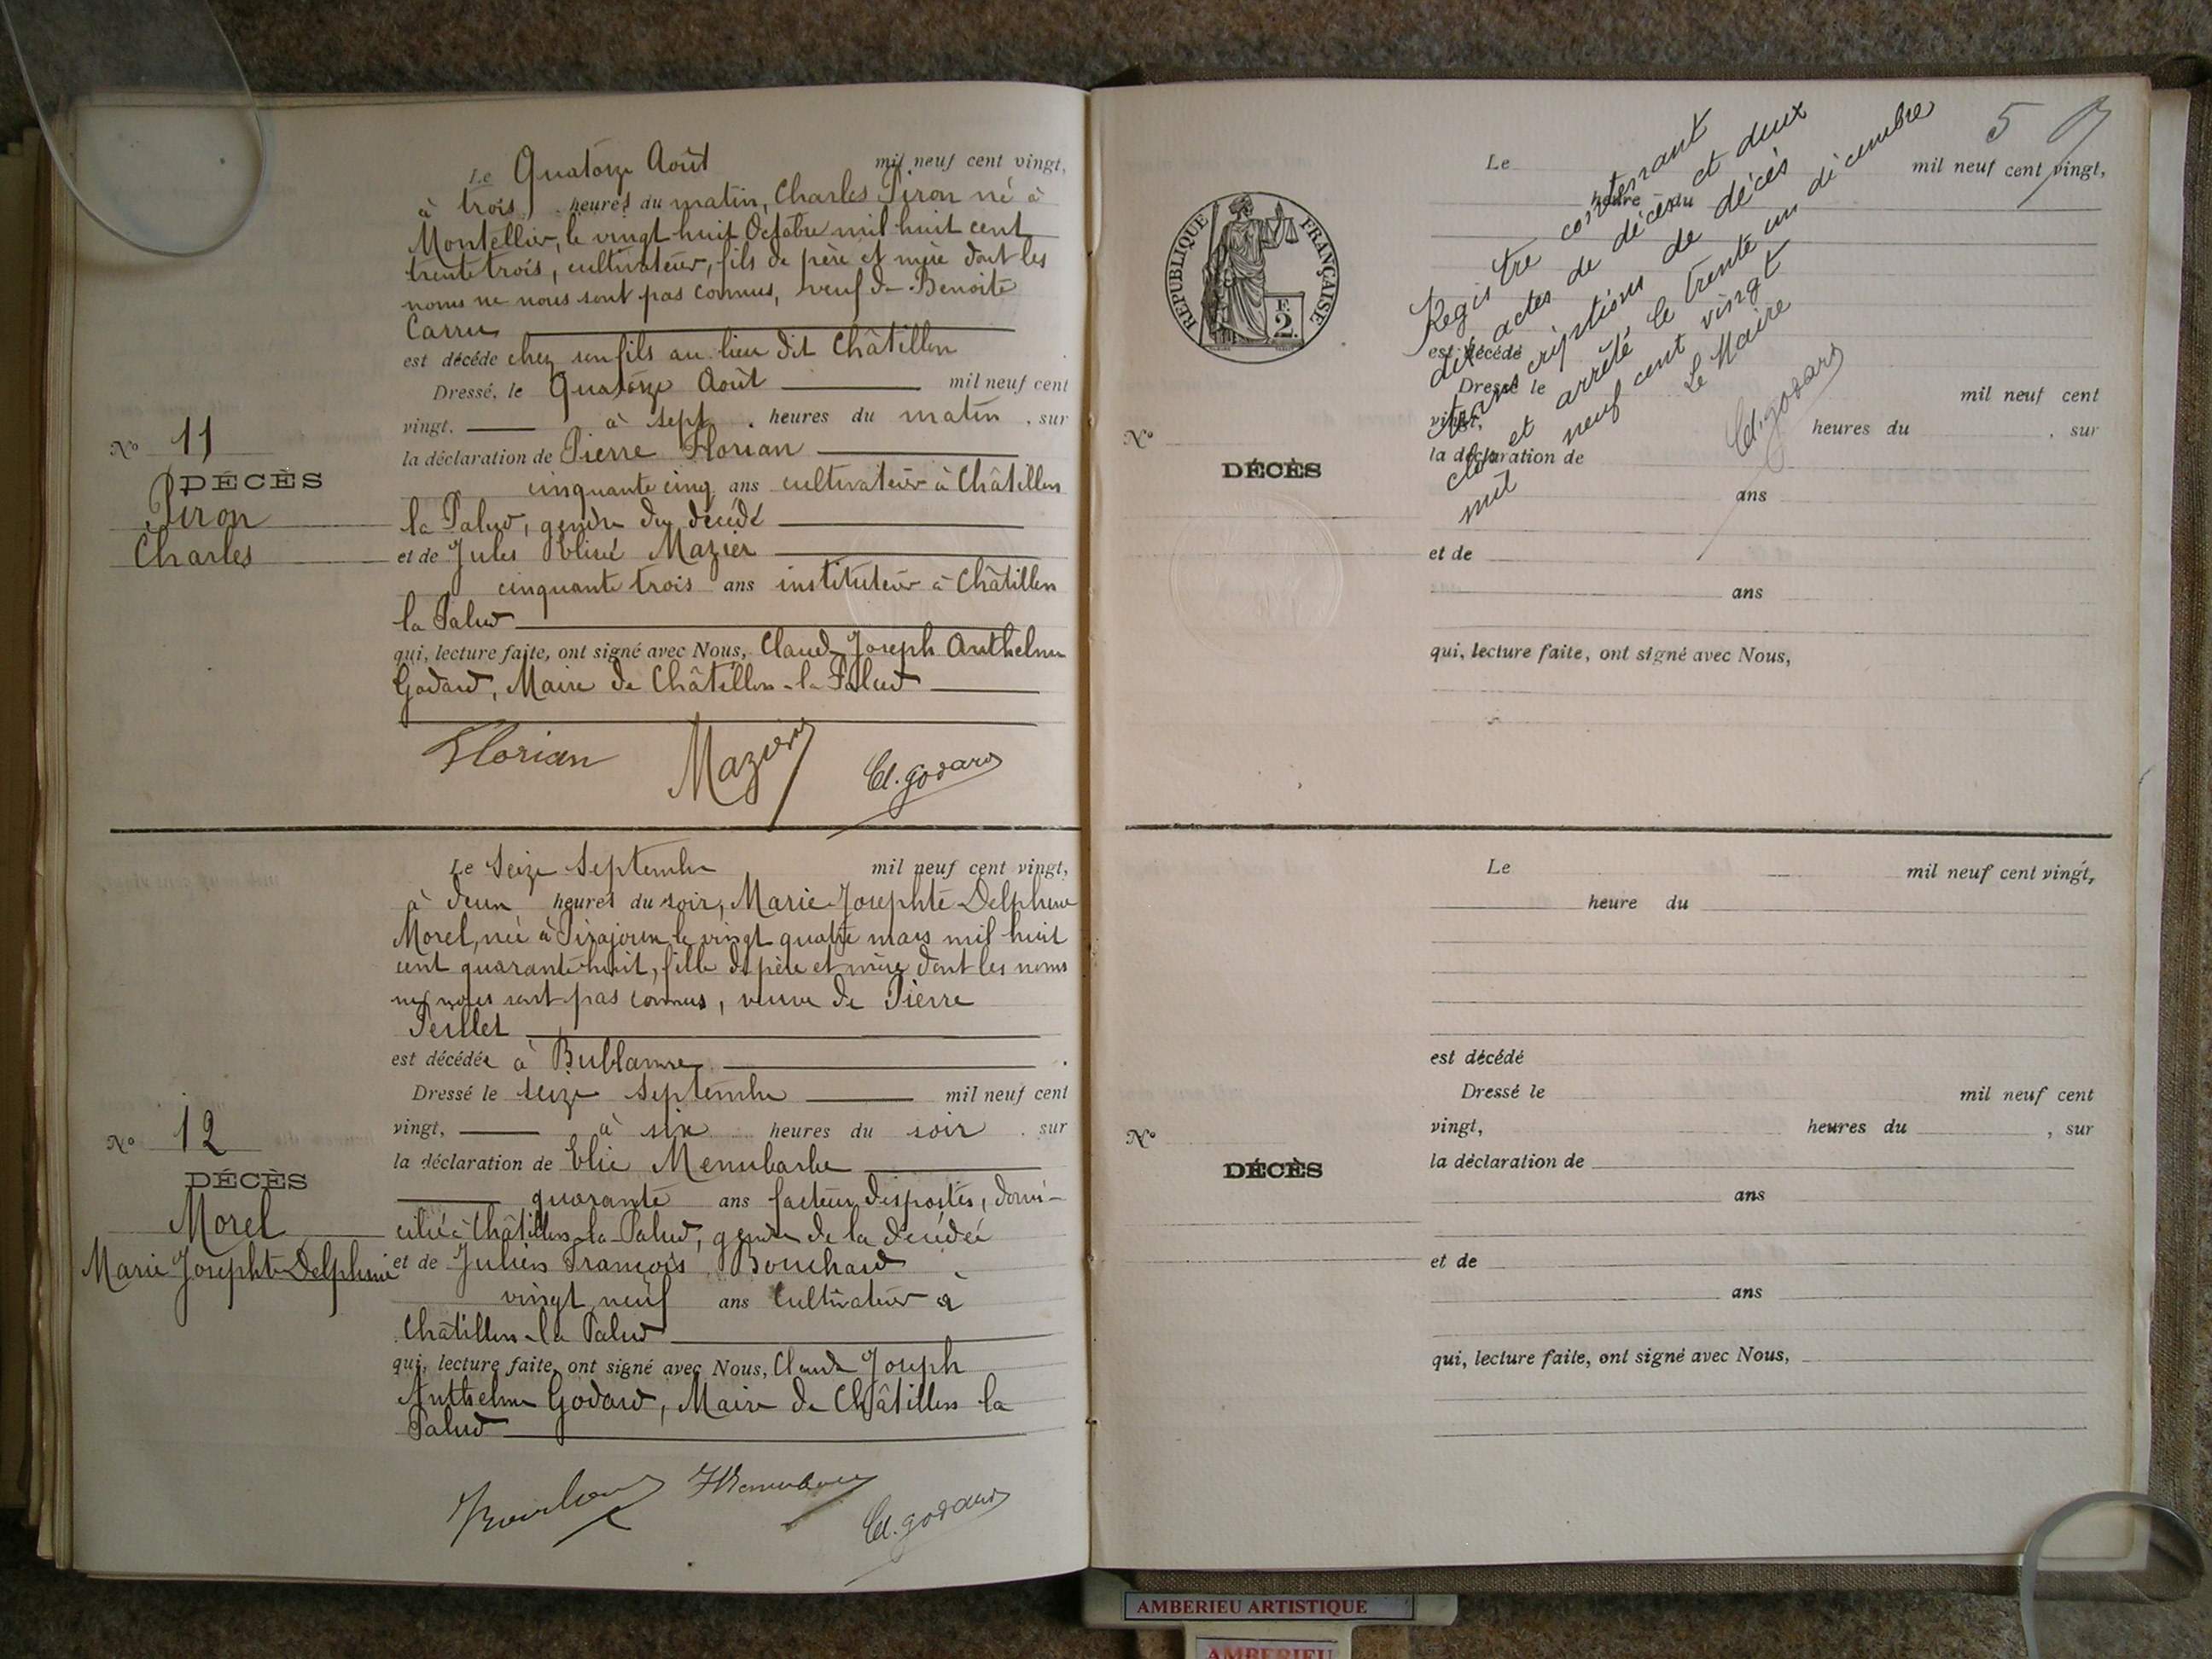 Le Quatorze Août mil neuf cent vingt,
à trois heures du matin, Charles Piron né à
Montellier, le vingt huit Octobre mil huit cent
trente trois, cultivateur, fils de père et mère dont les
noms ne nous sont pas connus, veuf de Benoite
Carru
est décédé chez son fils au lieu dit Châtillon
Dressé, le Quatorze Août mil neuf cent
vingt. à sept heures du matin, sur
la déclaration de Pierre Florian
cinquante cinq ans cultivateur à Châtillon
la Palud, gendre du décédé
et de Jules Elisé Mazier
cinquante trois ans instituteur à Châtillon
la Palud
qui, lecture faite, ont signé avec Nous, Claude Joseph Anthelme
Godard, Maire de Châtillon-la-Palud
Florian Mazier Cl. godard
No 11
DÉCÈS
Piron
Charles
Le Seize Septembre mil neuf cent vingt,
à deux heures du soir, Marie Josephte Delphine
Morel, née à Pirajoux le vingt quatre mars mil huit
cent quarante huit, fille de père et mère dont les noms
ne nous sont pas connus, veuve de Pierre
est décédée à Bublanne
Dressé le seize septembre mil neuf cent
vingt, à six heures du soir, sur
la déclaration de Elie
quarante ans facteur des postes, domi-
cilié à Châtillon-la-Palud, gendre de la décédée
et de Julien François Bouchard
vingt neuf ans cultivateur à
Châtillon-la Palud
qui, lecture faite, ont signé avec Nous, Claude Joseph
Anthelme Godard, Maire de Châtillon la
Palud
Cl. godard
No 12
DÉCÈS
Morel
Marie Josephte Delphine
5
RÉPUBLIQUE FRANÇAISE
E.
2.
Registre contenant
dix actes de décès et deux
transcriptions de décès
clos et arrêté le trente un décembre
mil neuf cent vingt
Le Maire
Cl. godard
Le mil neuf cent vingt,
heure du
est décédé
Dressé le mil neuf cent
vingt, heures du , sur
la déclaration de
ans
et de
ans
qui, lecture faite, ont signé avec Nous,
No
DÉCÈS
Le mil neuf cent vingt,
heure du
est décédé
Dressé le mil neuf cent
vingt, heures du , sur
la déclaration de
ans
et de
ans
qui, lecture faite, ont signé avec Nous,
No
DÉCÈS
AMBERIEU ARTISTIQUE
AMBERIEU